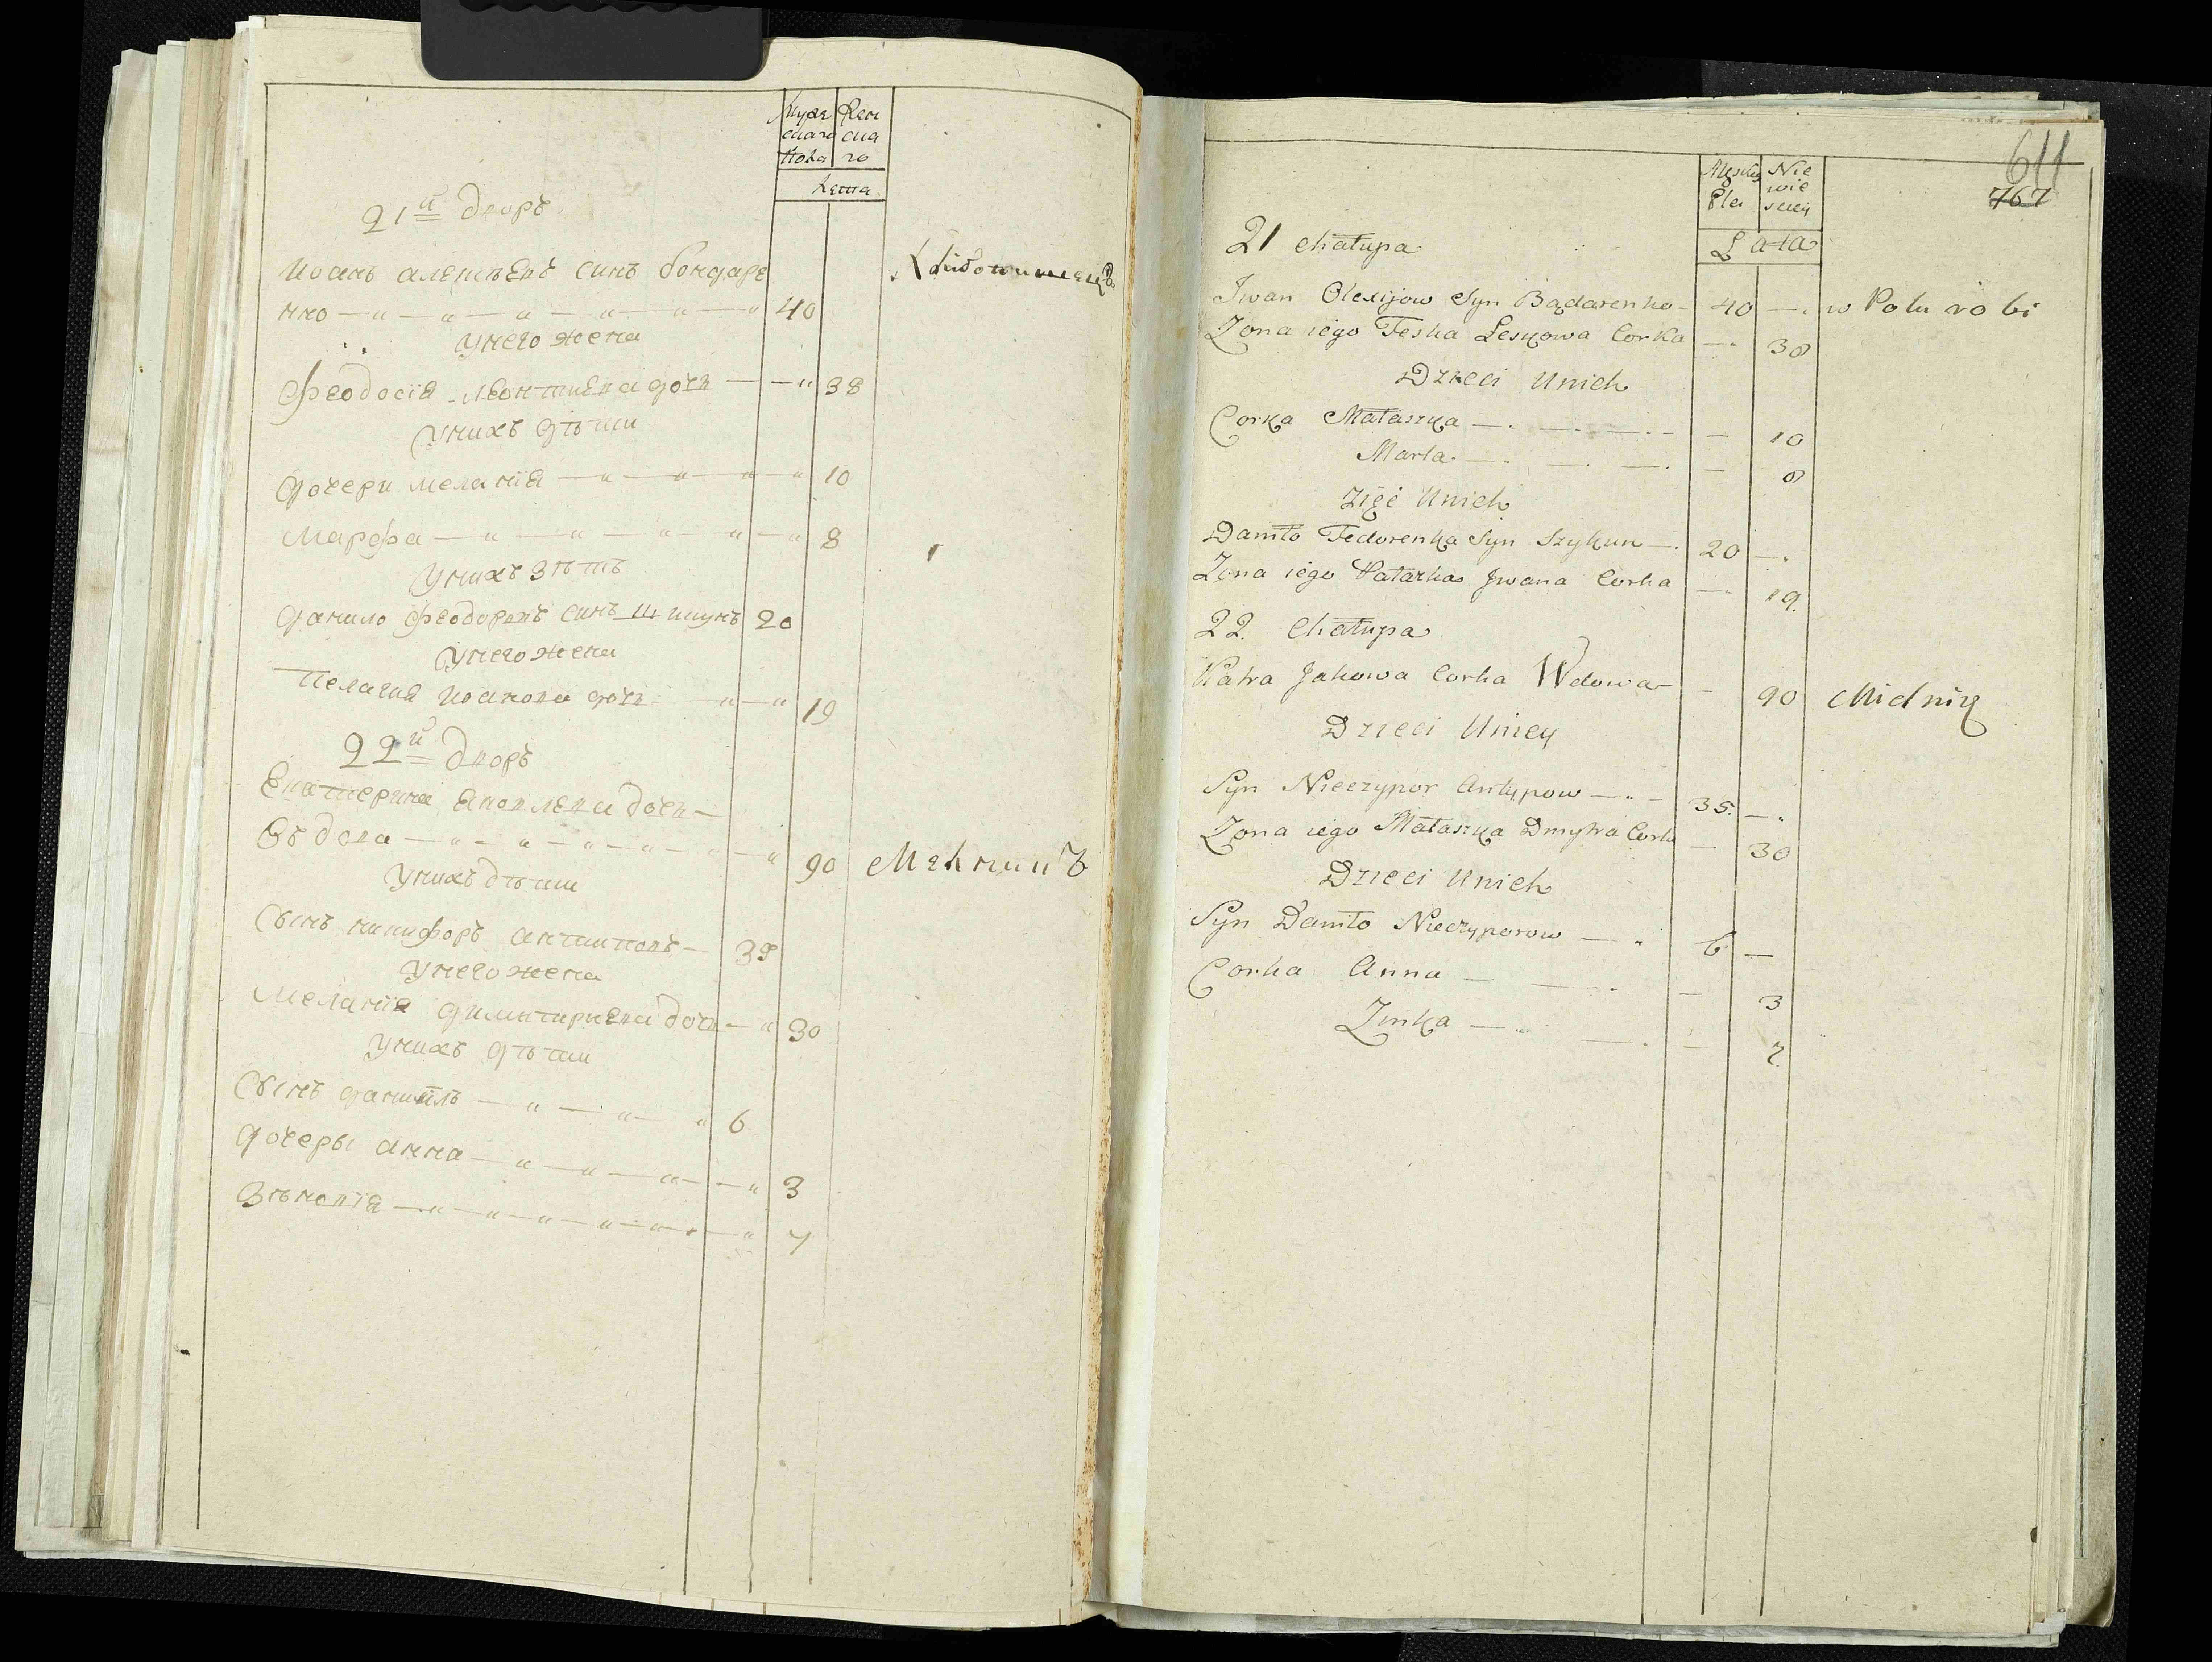 Муже Жен
скаго ска
пола го
Лета
21й дворъ
Иоанъ алексѣевъ синъ бондаре
нко — 40
Унего жена
Феодосія леонтиева дочь — 38
Унихъ дѣти
Дочери меланія — 10
Марфа — 8
Унихъ зять
Данило феодоровъ синъ шикунъ 20
Унего жена
Пелагия Иоанова дочь — 19
22й дворъ
Екатерина яковлева дочь —
Вѣдова — 90 Мелникъ
Унихъ дѣти
Сынъ никифоръ антиповъ — 35
Унего жена
Меланія димитриева дочь — 30
Унихъ дѣти
Сынъ даниилъ — 6
Дочеры анна — 3
Зѣновія — 7
611
767
Męskey Nie
Płei wie
sciey
Lata
21 Chałupa
Iwan Olexijow Syn Bądarenko — 40 — w Polu robi
Zona iego Feska Leskowa Corka — 38
Dzieci Unich
Corka Małaszka — — 10
Marta — — 8
Zięć Unich
Daniło Fedorenka Syn Szykun — 20 —
Zona iego Patazka Jwana Corka — 19.
22. Chałupa
Katra Jakowa Corka Wdowa — — 90 Mielnik
Dzieci Uniey
Syn Nieczypor Antypow — 35. —
Zona iego Małaszka Dmytra Corka — 30
Dzieci Unich
Syn Daniło Nieczyporow — 6 —
Corka Anna — — 3
Zinka — — 7.